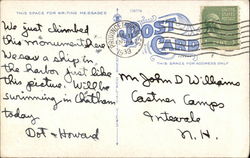 THIS SPACE FOR WRITING MESSAGES
POST CARD
We just climbed
this monument here
We saw a ship in
the harbor just like
this picture. Will be
swimming in Chatham
today
Dot & Howard
Mr John D Williams
Castner Camps
Intervale
N. H.
THIS SPACE FOR ADDRESS ONLY
1939